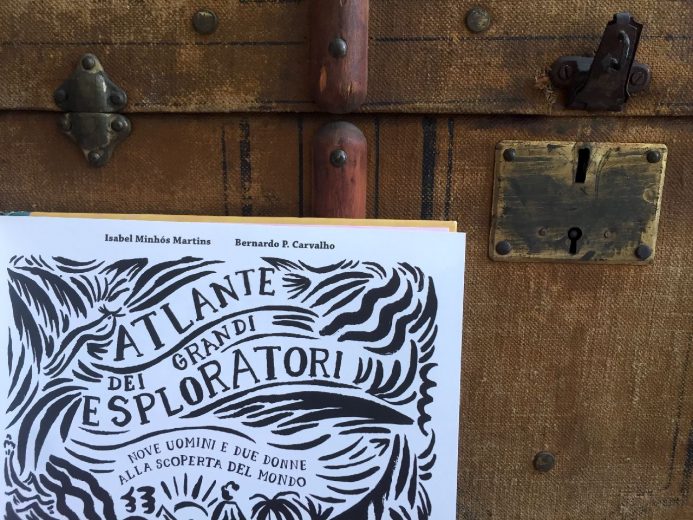 Isabel Minhós Martins Bernardo P. Carvalho
ATLANTE
DEI GRANDI
ESPLORATORI
NOVE UOMINI E DUE DONNE
ALLA SCOPERTA DEL MONDO